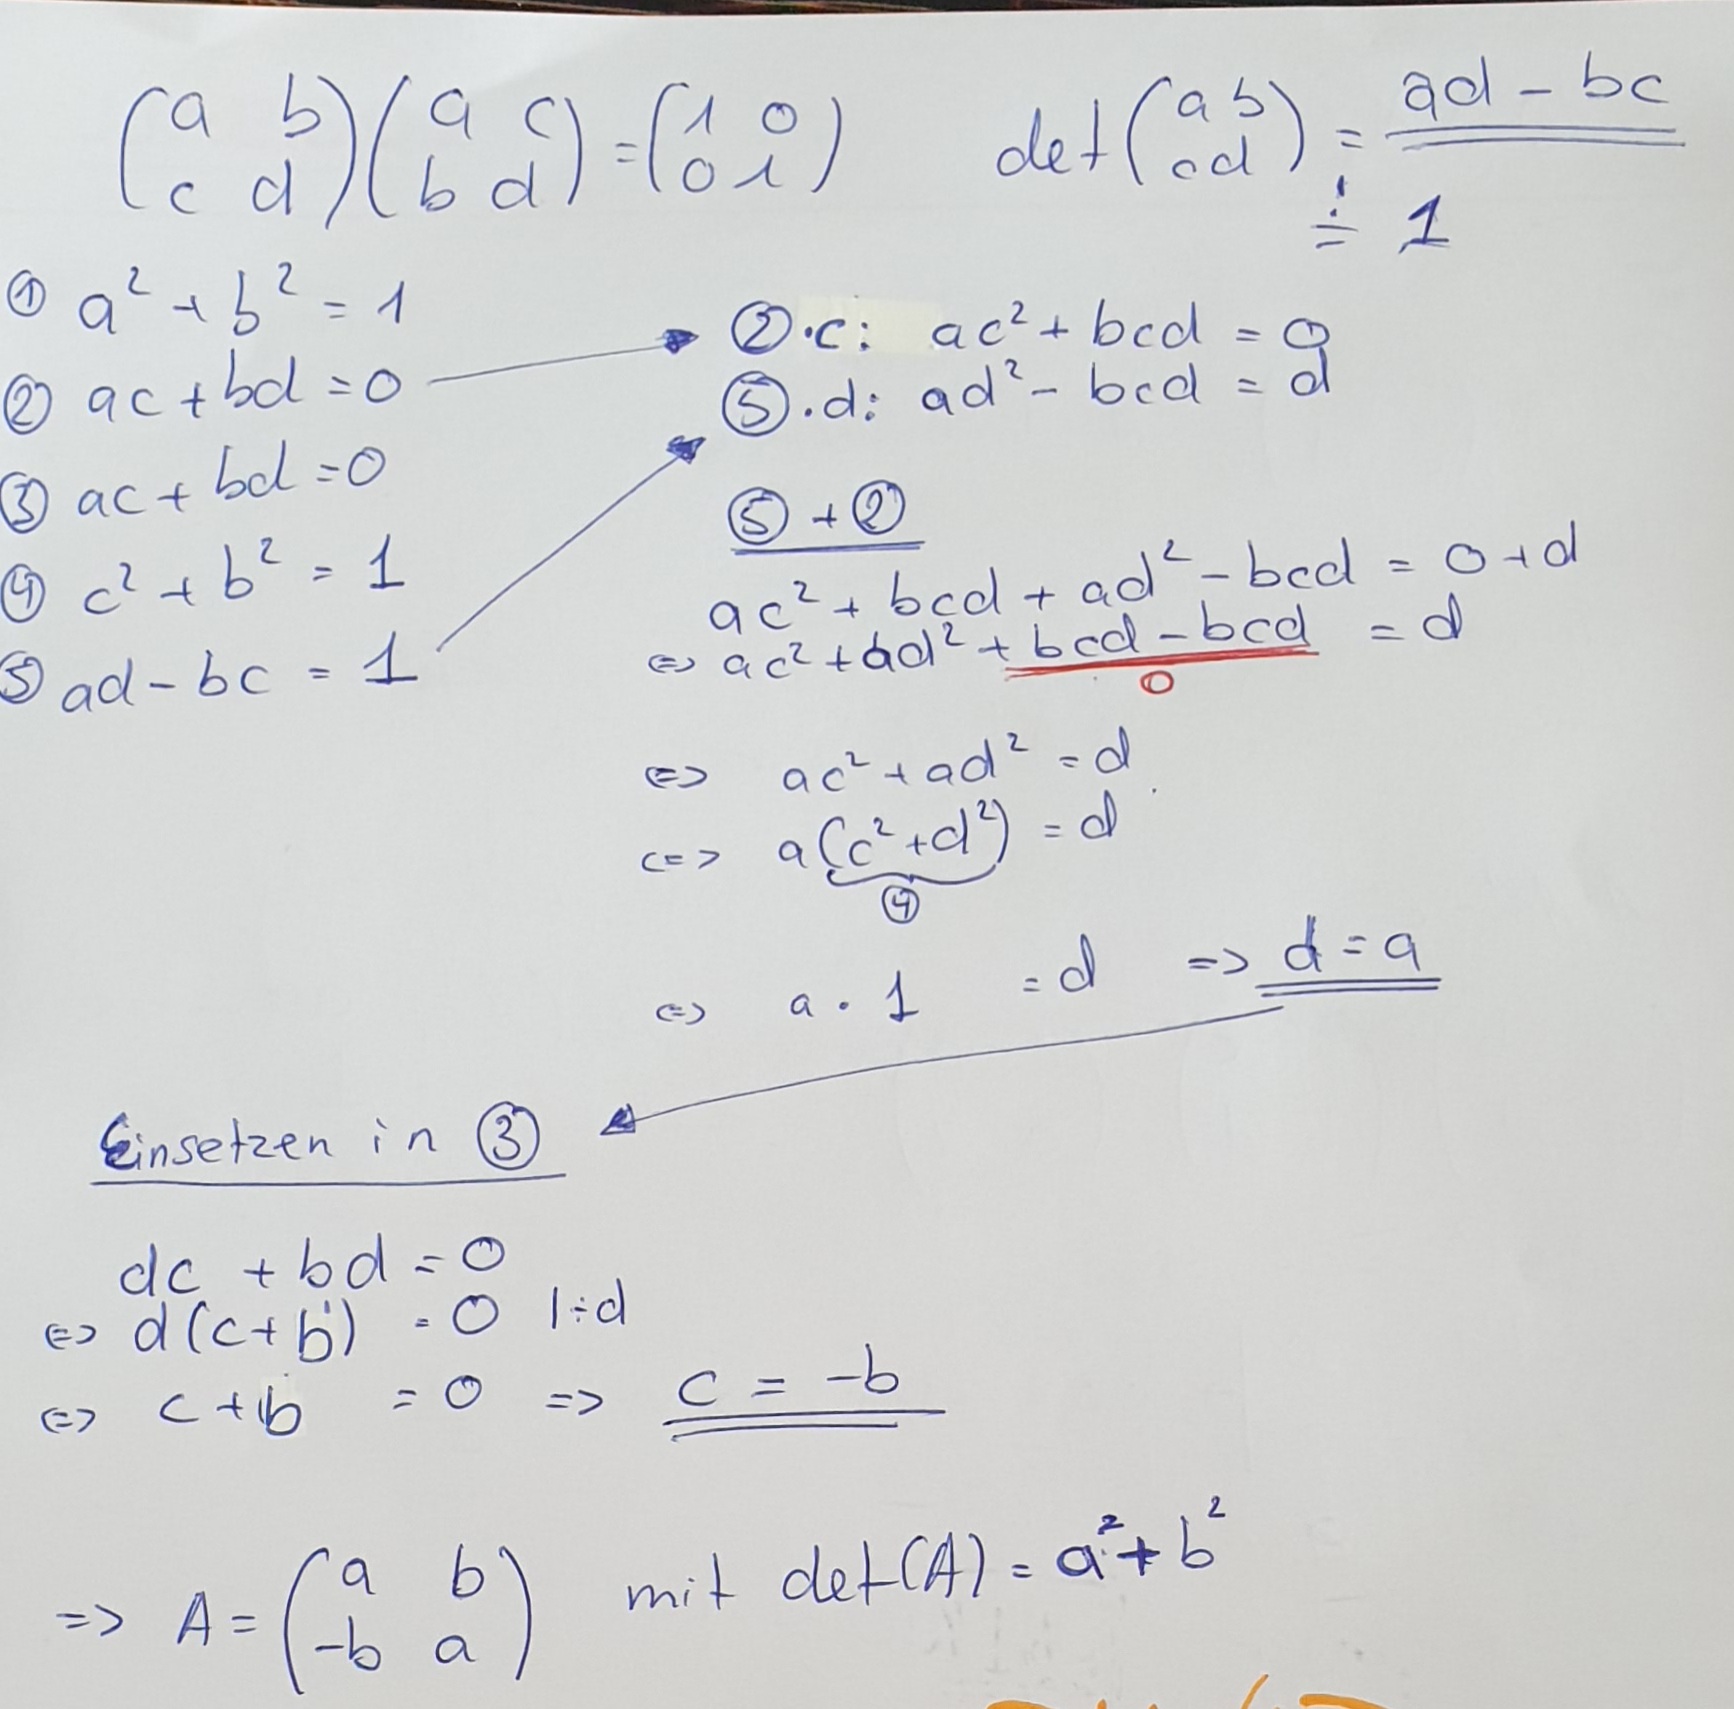 (a b; c d)(a c; b d) = (1 0; 0 1) det(a b; c d) = ad - bc
≟ 1
① a² + b² = 1
② ac + bd = 0
③ ac + bd = 0
④ c² + b² = 1
⑤ ad - bc = 1
②·c: ac² + bcd = 0
⑤·d: ad² - bcd = d
⑤ + ②
ac² + bcd + ad² - bcd = 0 + d
<=> ac² + ad² + bcd - bcd = d
0
<=> ac² + ad² = d
<=> a(c² + d²) = d
④
<=> a · 1 = d => d = a
Einsetzen in ③
dc + bd = 0
<=> d(c + b) = 0 | ÷ d
<=> c + b = 0 => c = -b
=> A = (a b; -b a) mit det(A) = a² + b²